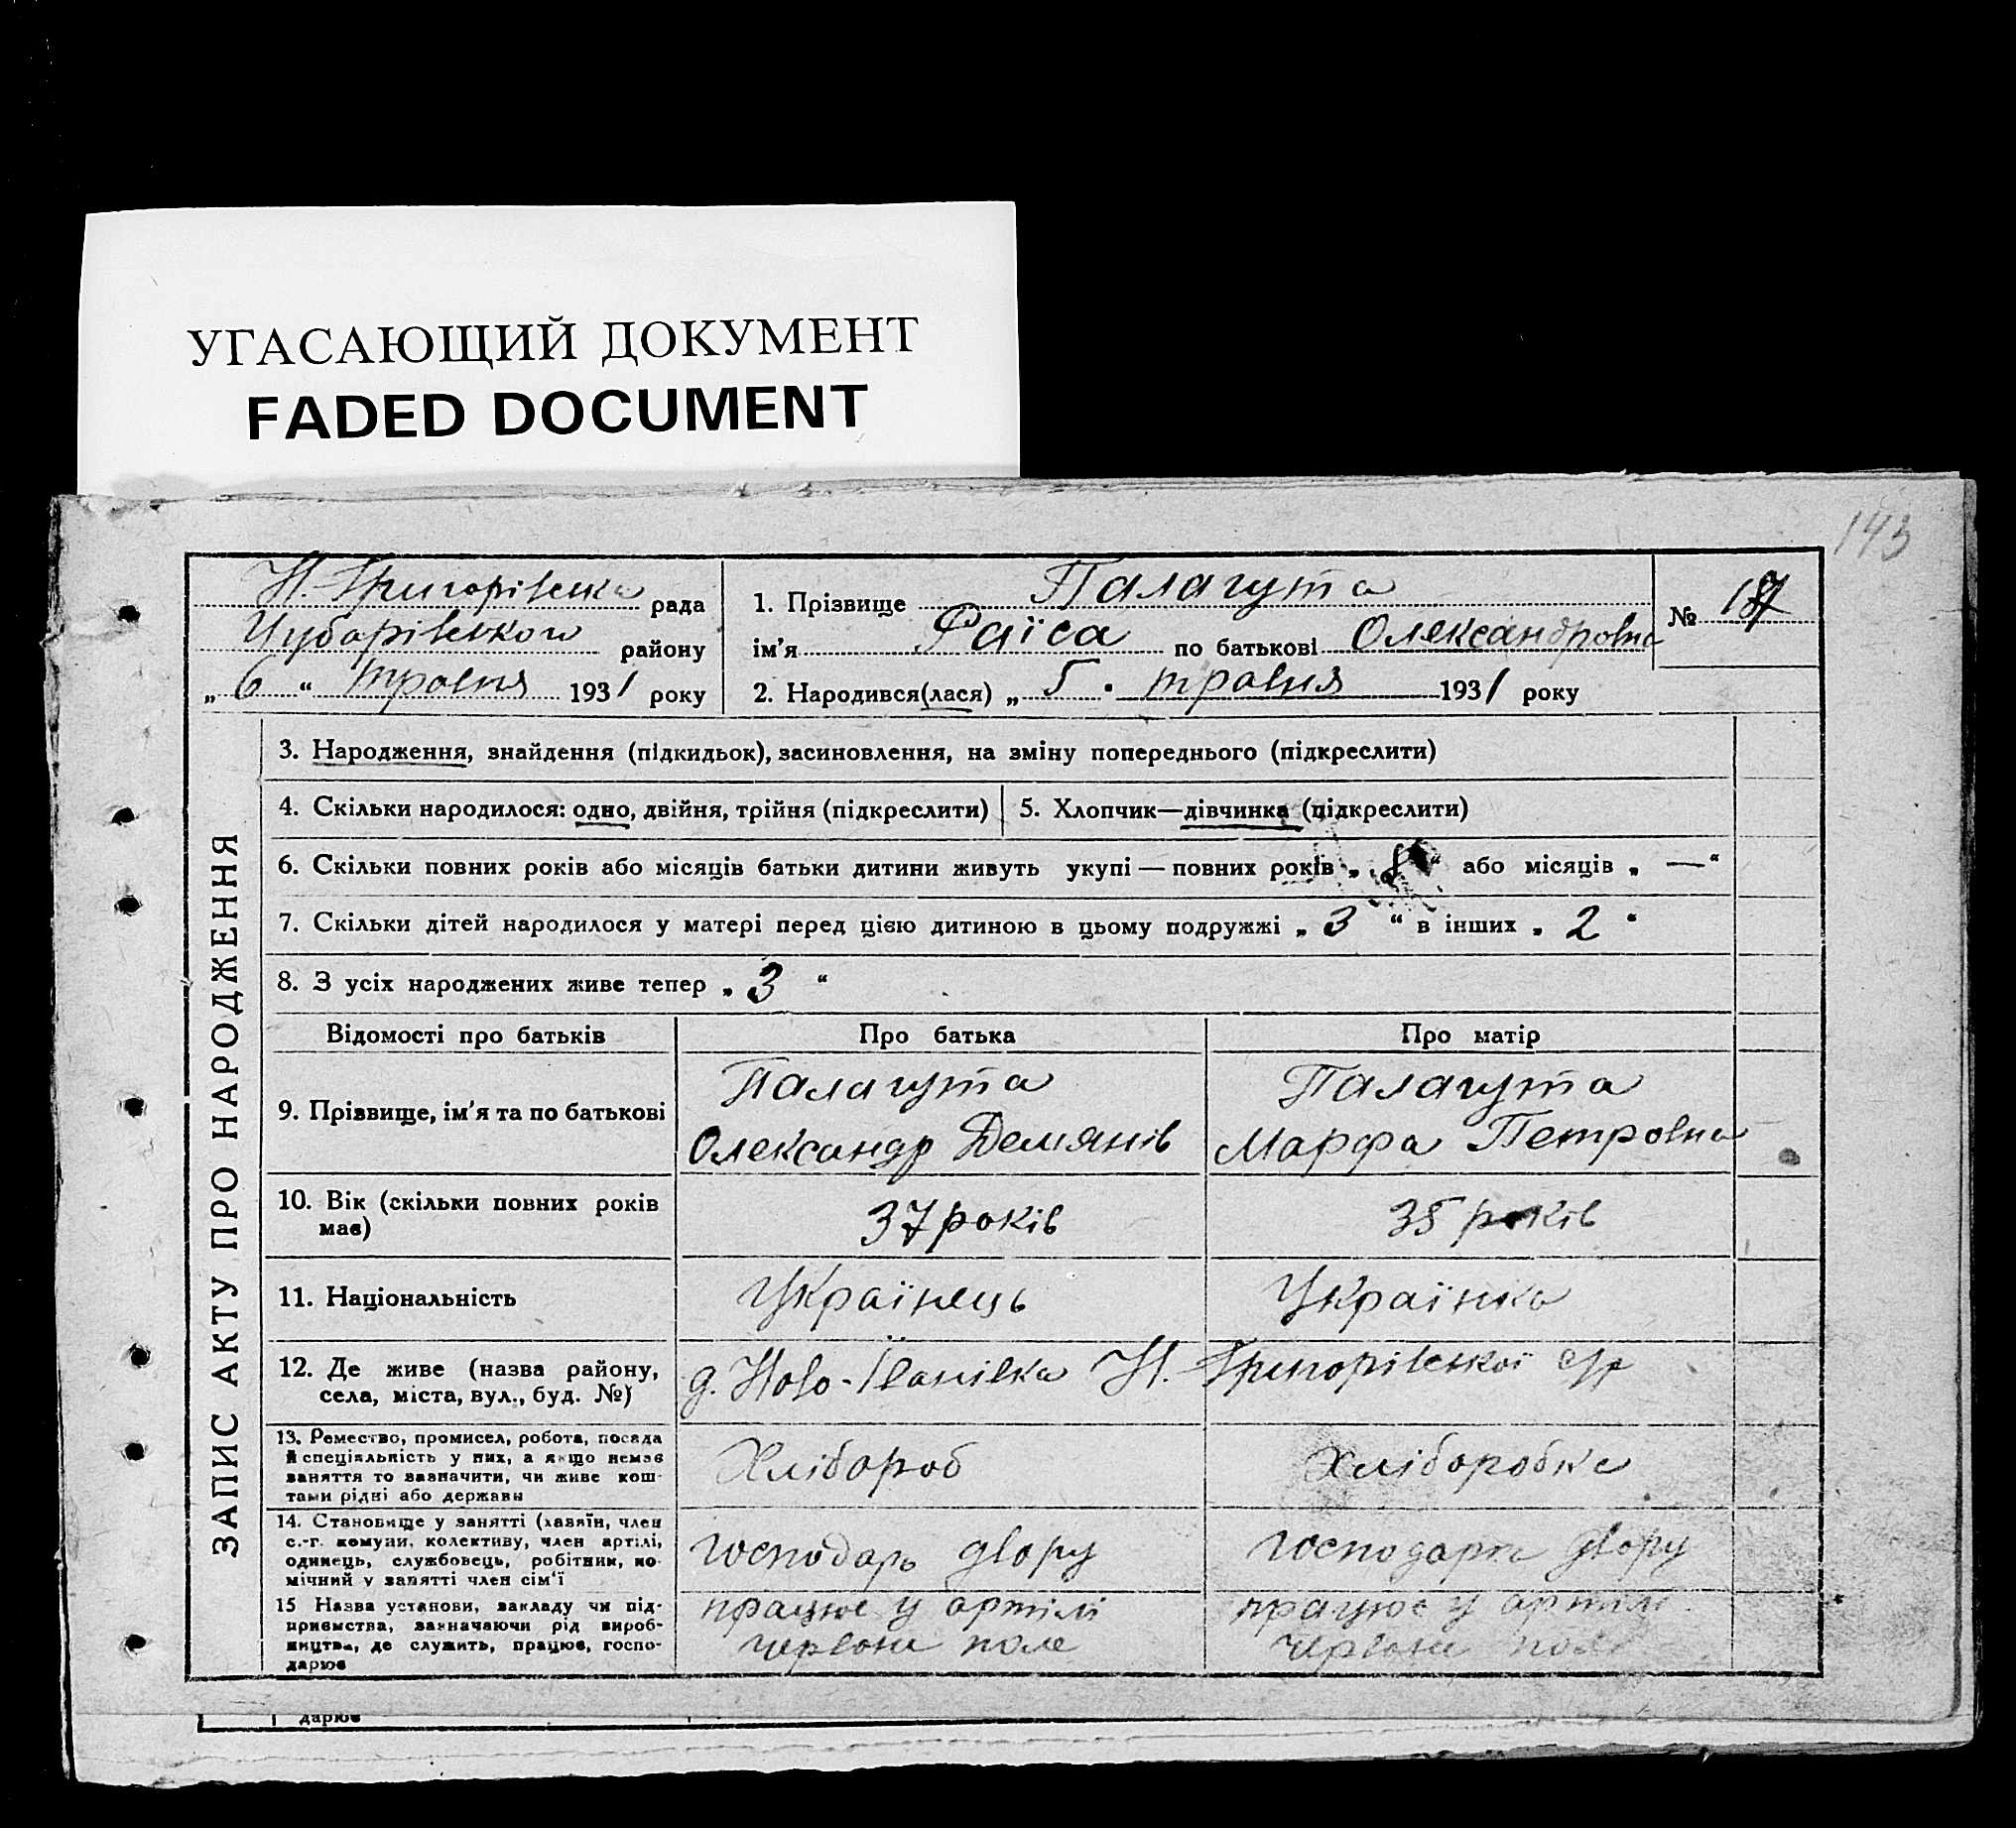 УГАСАЮЩИЙ ДОКУМЕНТ
FADED DOCUMENT
143
Н.-Григорівська рада
Чубарівського району
„ 6 “ травня 1931 року
1. Прізвище Палагута
ім'я Раїса по батькові Олександровна
2. Народився(лася) „ 5 “ травня 1931 року
№ 17
ЗАПИС АКТУ ПРО НАРОДЖЕННЯ
3. Народження, знайдення (підкидьок), засиновлення, на зміну попереднього (підкреслити)
4. Скільки народилося: одно, двійня, трійня (підкреслити)
5. Хлопчик—дівчинка (підкреслити)
6. Скільки повних років або місяців батьки дитини живуть укупі — повних років „ “ або місяців „ — “
7. Скільки дітей народилося у матері перед цією дитиною в цьому подружжі „ 3 “ в інших „ 2 “
8. З усіх народжених живе тепер „ 3 “
Відомості про батьків Про батька Про матір
9. Прізвище, ім'я та по батькові
Палагута
Олександр Демянів
Палагута
Марфа Петровна
10. Вік (скільки повних років
має)
37 років
35 років
11. Національність
Українець
Українка
12. Де живе (назва району,
села, міста, вул., буд. №)
д. Ново-Іванівка Н.-Григорівської с/р
13. Ремество, промисел, робота, посада
й спеціяльність у них, а якщо немає
заняття то зазначити, чи живе кош-
тами рідні або держави
Хлібороб
Хліборобка
14. Становище у занятті (хазяїн, член
с.-г. комуни, колективу, член артілі,
одинець, службовець, робітник, по-
мічний у занятті член сім'ї
господарь двору
господарка двору
15 Назва установи, закладу чи під-
приємства, зазначаючи рід вироб-
ництва, де служить, працює, госпо-
дарює
працює у артілі
червоне поле
працює у артілі
червоне поле
дарює